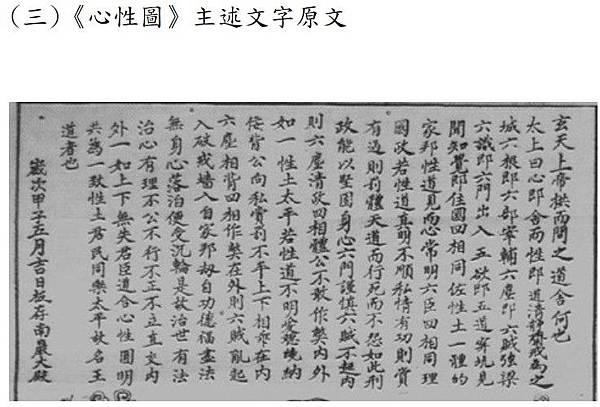 (三)《心性圖》主述文字原文
玄天上帝拱而問之道舍何也
太上曰心即舍而性即道清靜齋戒為之
城六根即六部宰輔六塵即六賊強梁
六識即六門出入五欲即五道穽坑見
聞知覺即住國四相同佐性土一體的
家邦性道見而心常明六臣四相同理
國政若性道真明不順私情有功則賞
有過則罰體天道而行死而不怨如此刑
政能以堅固身心六門謹慎六賊不起內
則六塵清政四相體公不敢作獘內外
如一性土太平若性道不明愛慾境納
侫背公向私賞罰不平上下相乖在內
六塵相背四相作獘在外則六賊亂起
入破戒墻入自家邦劫自功德福盡法
無身心落泊便受沉輪是故治世有法
治心有理不公不行不正不立直交內
外一如上下無失君臣道合心性圓明
共為一致性土君民同樂太平故名王
道者也
歲次甲子五月吉日板存南巖大殿